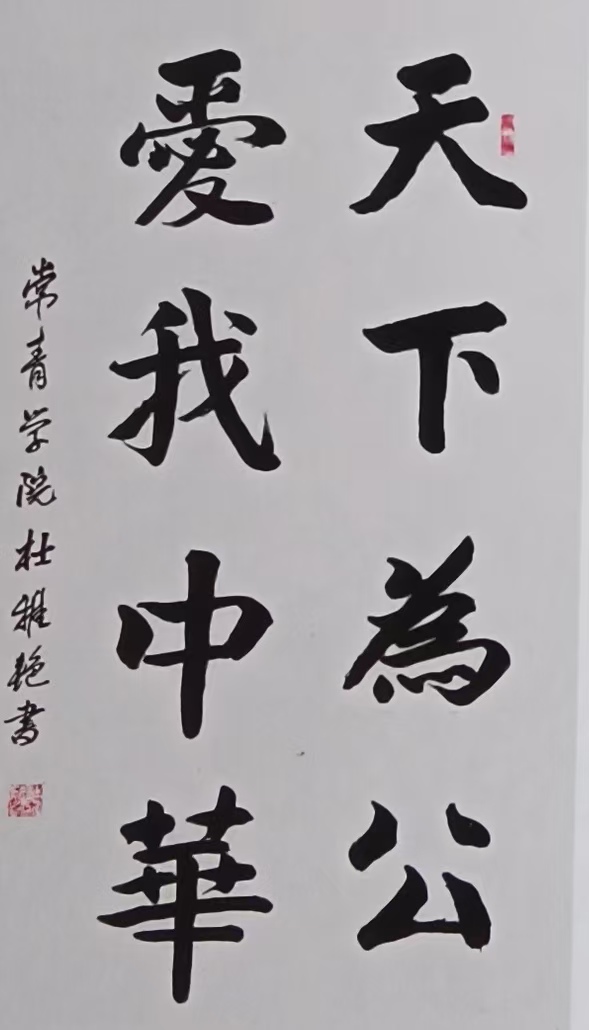 天下為公
愛我中華
常青学院杜雅艳书